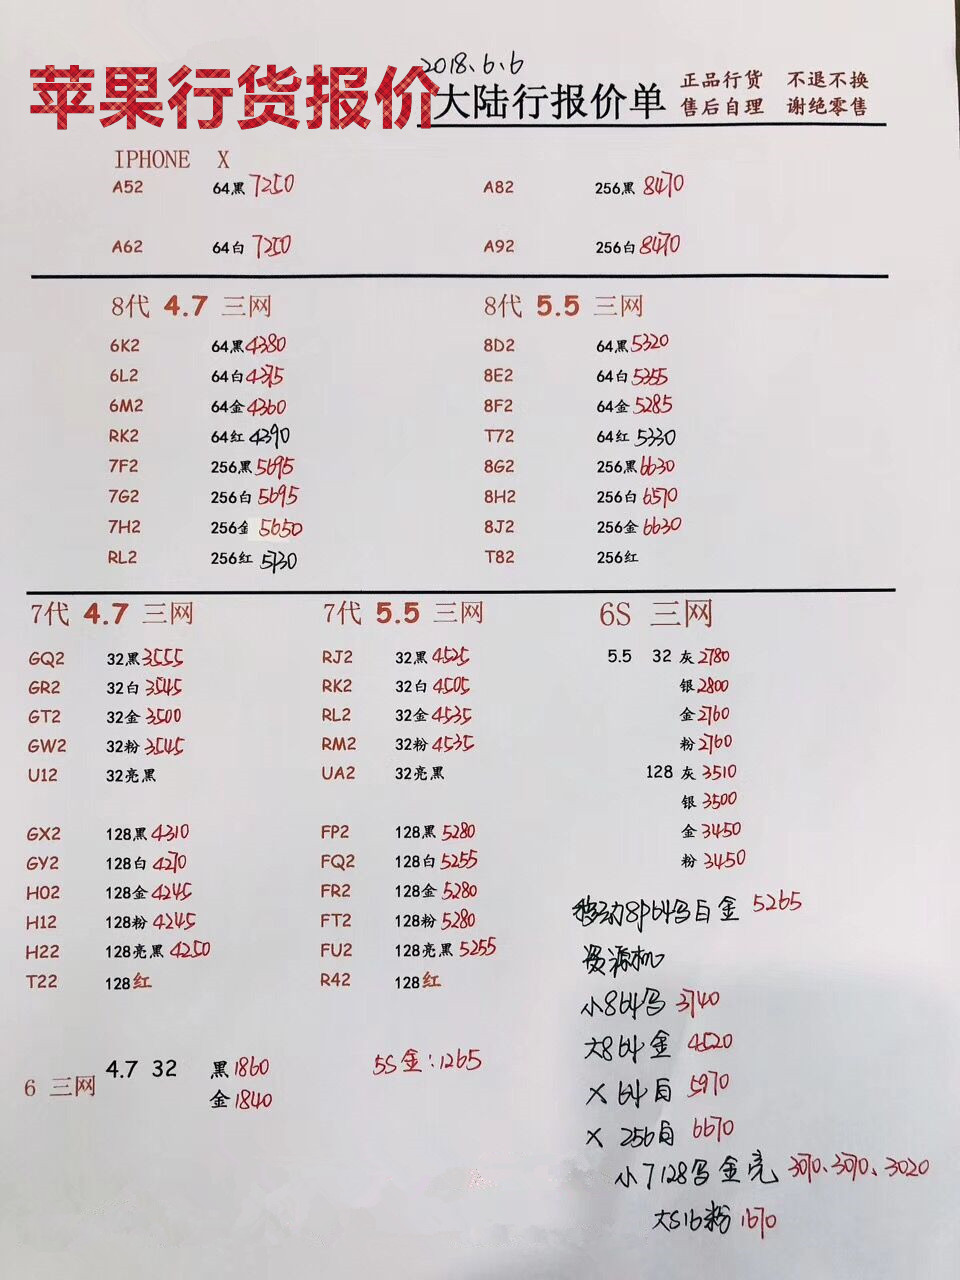 2018.6.6
苹果行货报价
大陆行报价单
正品行货 不退不换
售后自理 谢绝零售
IPHONE X
A52 64黑 7250 A82 256黑 8470
A62 64白 7250 A92 256白 8470
8代 4.7 三网 8代 5.5 三网
6K2 64黑 4380 8D2 64黑 5320
6L2 64白 4375 8E2 64白 5355
6M2 64金 4360 8F2 64金 5285
RK2 64红 4390 T72 64红 5330
7F2 256黑 5695 8G2 256黑 6630
7G2 256白 5695 8H2 256白 6570
7H2 256金 5650 8J2 256金 6630
RL2 256红 5730 T82 256红
7代 4.7 三网 7代 5.5 三网 6S 三网
GQ2 32黑 3555 RJ2 32黑 4525 5.5 32 灰 2780
GR2 32白 3545 RK2 32白 4505 银 2800
GT2 32金 3500 RL2 32金 4535 金 2760
GW2 32粉 3545 RM2 32粉 4535 粉 2760
U12 32亮黑 UA2 32亮黑 128 灰 3510
银 3500
GX2 128黑 4310 FP2 128黑 5280 金 3450
GY2 128白 4270 FQ2 128白 5255 粉 3450
H02 128金 4245 FR2 128金 5280
H12 128粉 4245 FT2 128粉 5280
H22 128亮黑 4250 FU2 128亮黑 5255
T22 128红 R42 128红
移动8P64 白金 5265
资源机
小864 3740
大864金 4520
X 64白 5970
X 256白 6670
小7128 金亮 3070、3070、3020
大S16粉 1670
6 三网 4.7 32 黑 1860
金 1840
5S金:1265